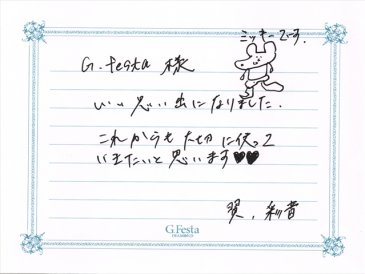 ミッキーです。
G.festa 様
いい思い出になりました.
これからも大切に使って
いきたいと思います♥♥
翼.
G.Festa